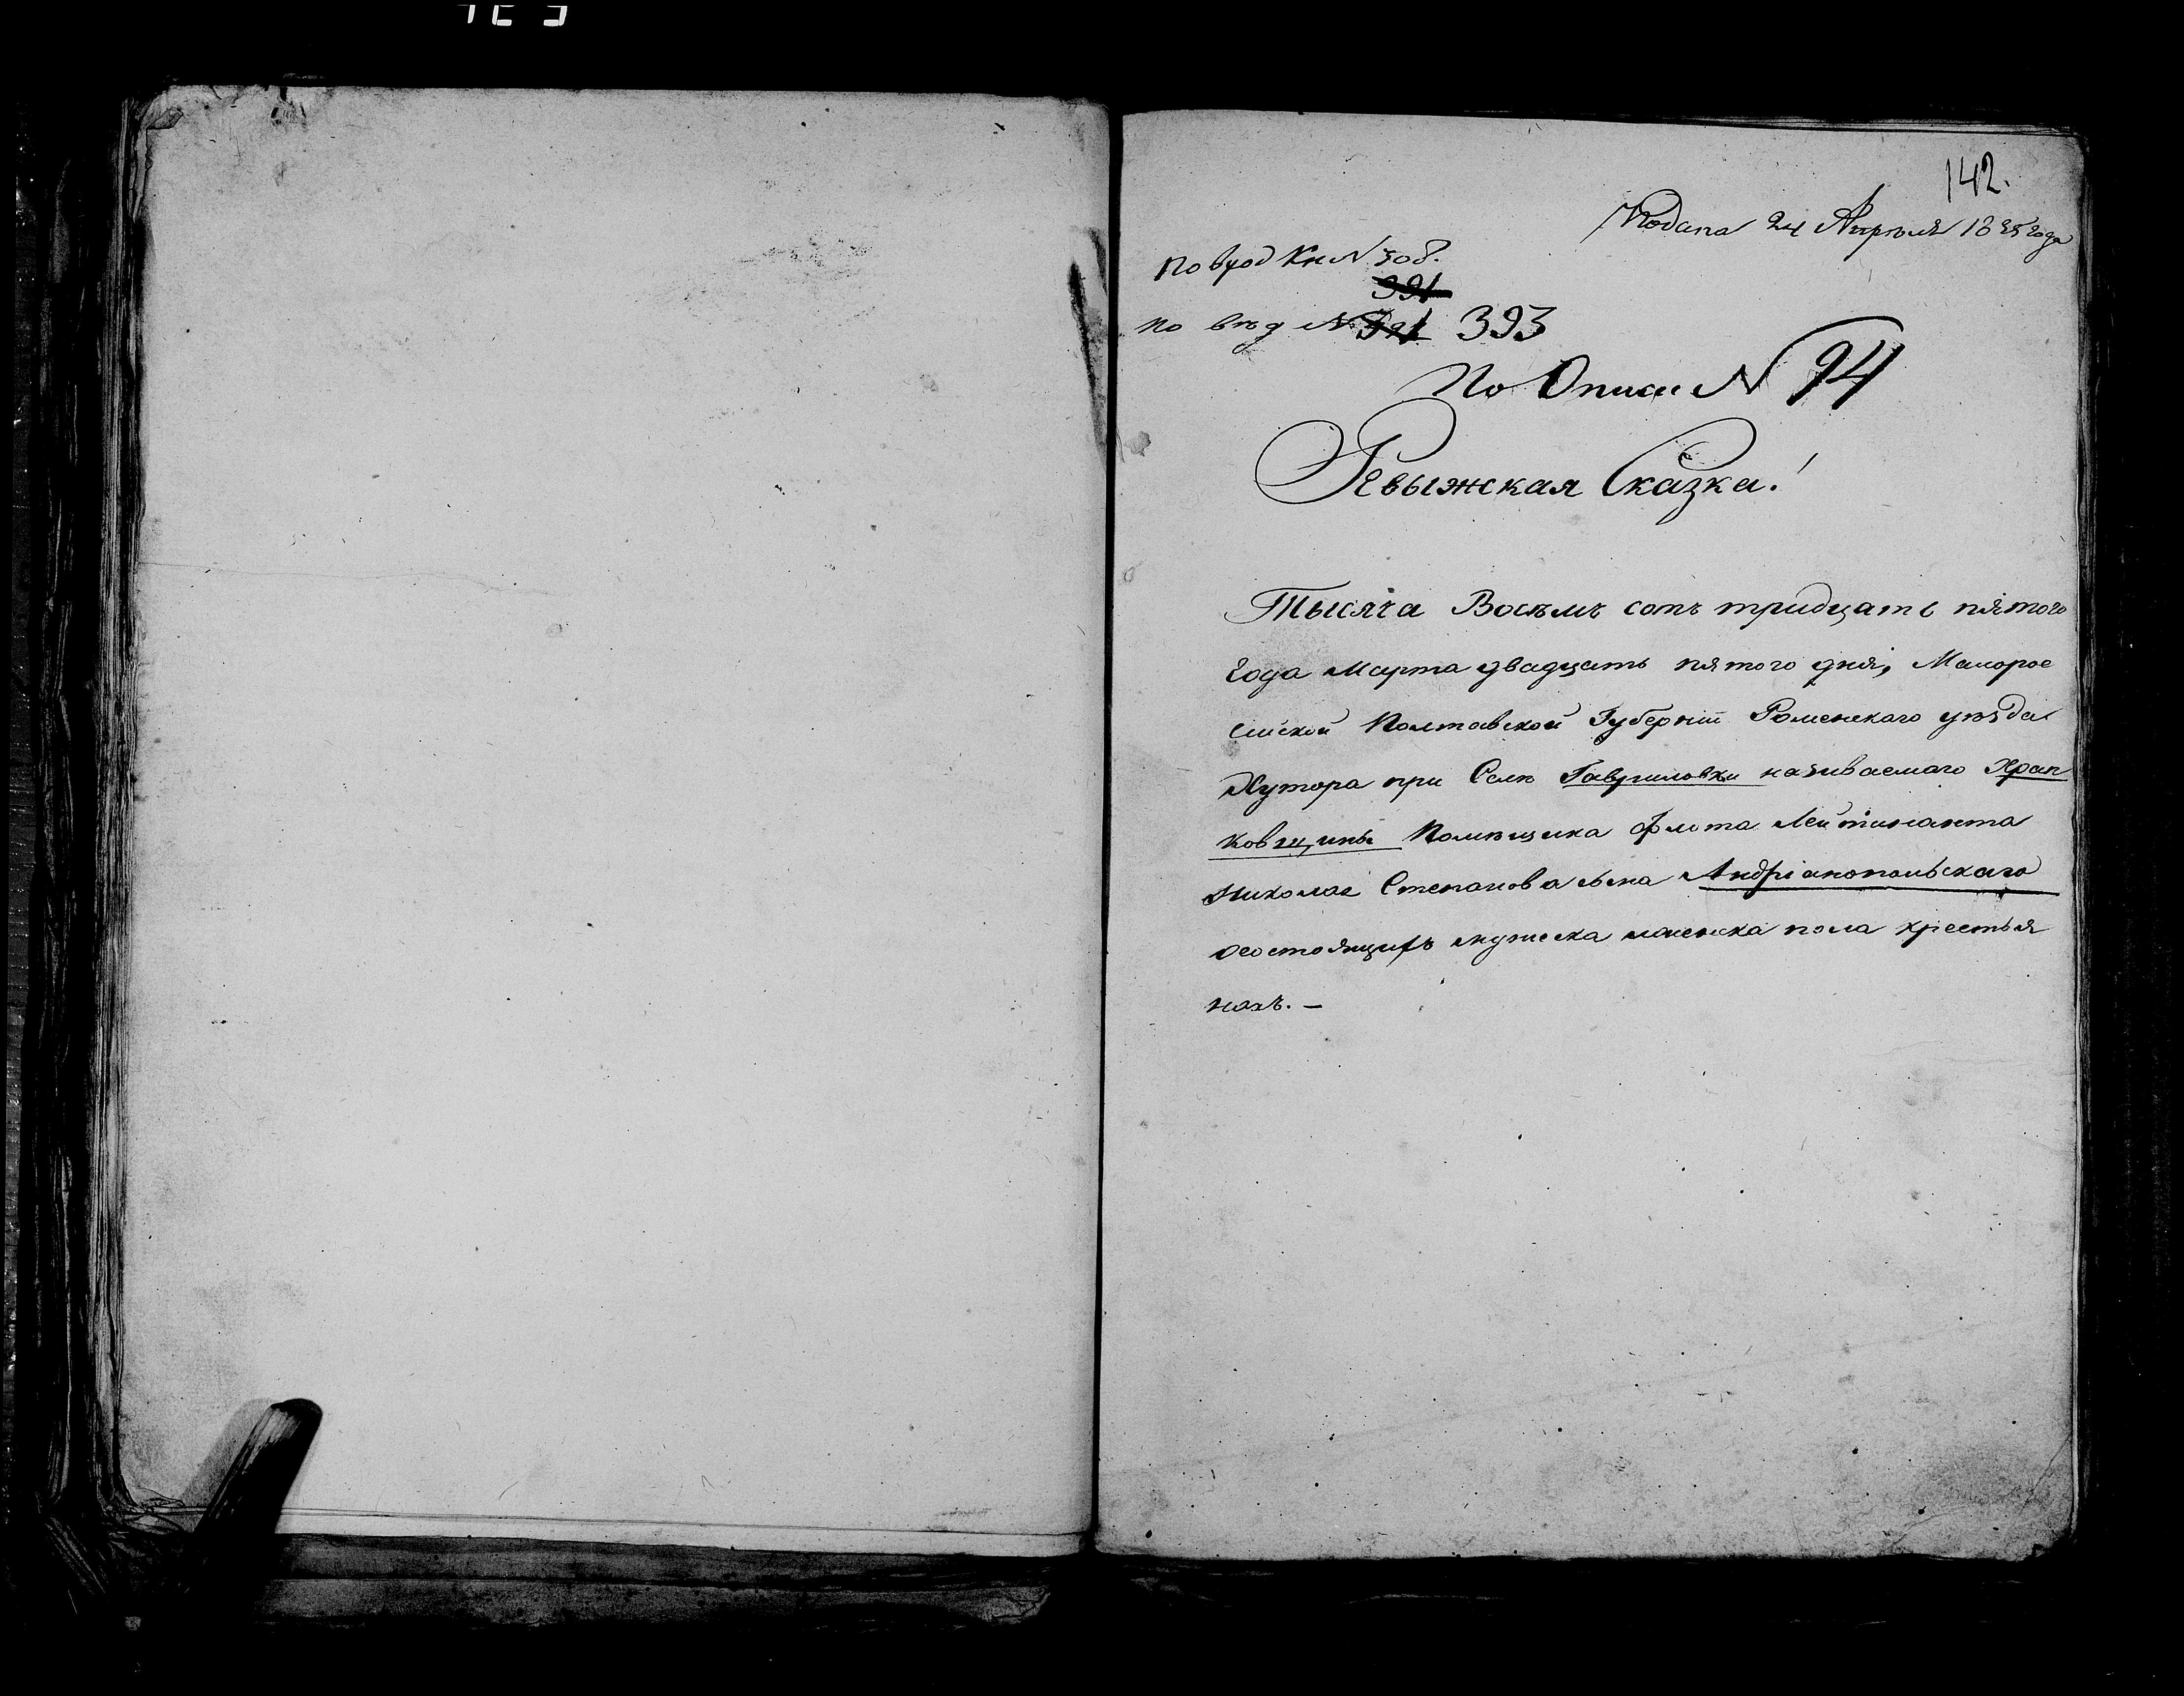 142.
Подана 24 Апреля 1835 года
По вход Кн N 308.
391
по вѣд N 391 393
По Описи N 94
Ревыжская Сказка!
Тысяча Восѣмъ сотъ тридцать пятого
Года Марта двадцать пятого дня, Малорос
сийской Полтавской Губернiи Роменского уѣзда
Хутора при Селѣ Гавриловки називаемаго Храп
ковщины Помѣщика Флота Лейтинанта
Николая Степанова сына Андрiанопольскаго
осостоящихъ мужеска иженска пола крестья
нахъ. —